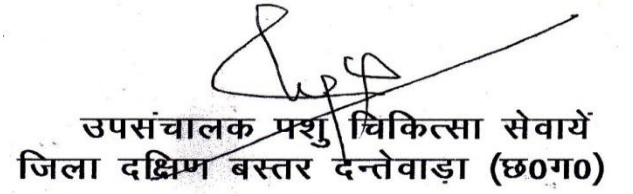 उपसंचालक पशु चिकित्सा सेवायें
जिला दक्षिण बस्तर दन्तेवाड़ा (छ0ग0)